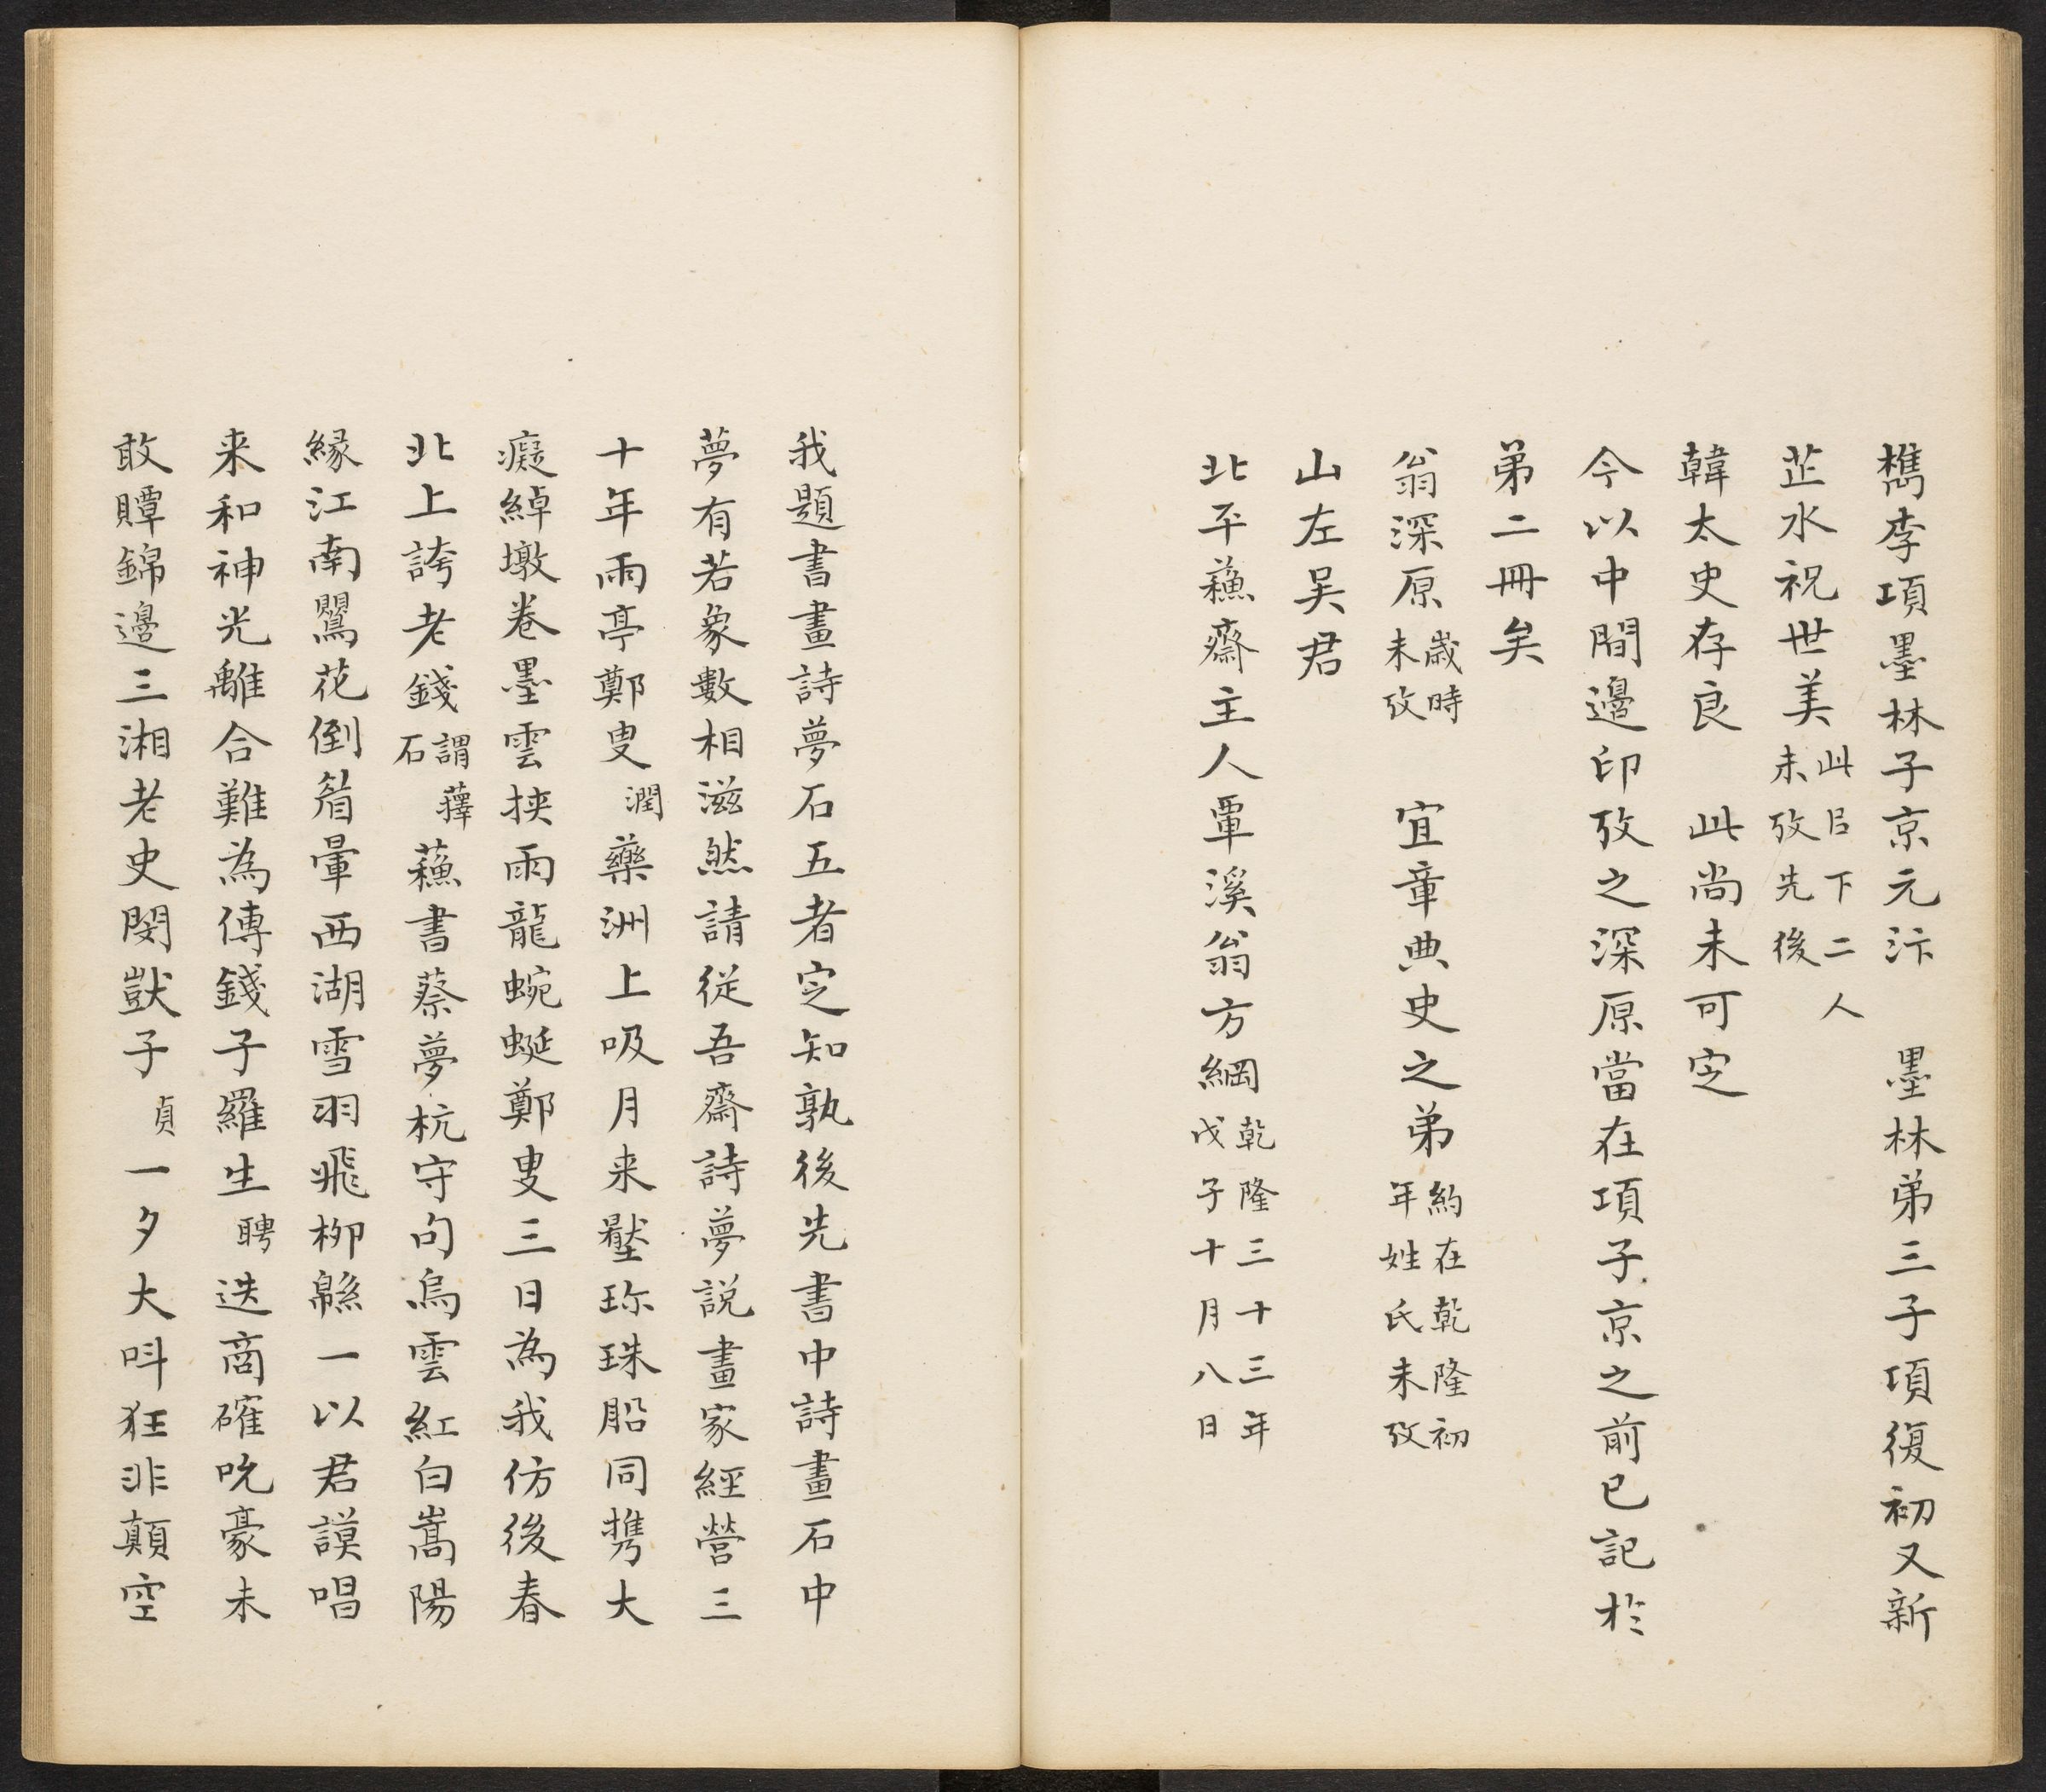 檇李項墨林子京元汴　墨林弟三子項復初又新
芷水祝世美此㠯下二人未攷先後
韓太史存良　此尚未可定
今以中間邊印攷之深原當在項子京之前已記於
弟二冊矣
翁深原歲時未攷　宜章典史之弟約在乾隆初年姓氏未攷
山左吴君
北平蘓齋主人覃溪翁方綱乾隆三十三年戊子十月八日
我題書畫詩夢石五者定知孰後先書中詩畫石中
夢有若象數相滋然請従吾齋詩夢説畫家經營三
十年雨亭鄭叟潤藥洲上吸月来壑珎珠船同携大
癡綽墩卷墨雲挾雨龍蜿蜒鄭叟三日為我仿後春
北上誇老錢謂蘀石蘓書蔡夢杭守句烏雲紅白嵩陽
緣江南鸎花倒㫺暈西湖雪羽飛栁緜一以君謨唱
来和神光離合難為傳錢子羅生聘迭商確吮豪未
敢賻錦邊三湘老史閔獃子貞一夕大呌狂非顛空